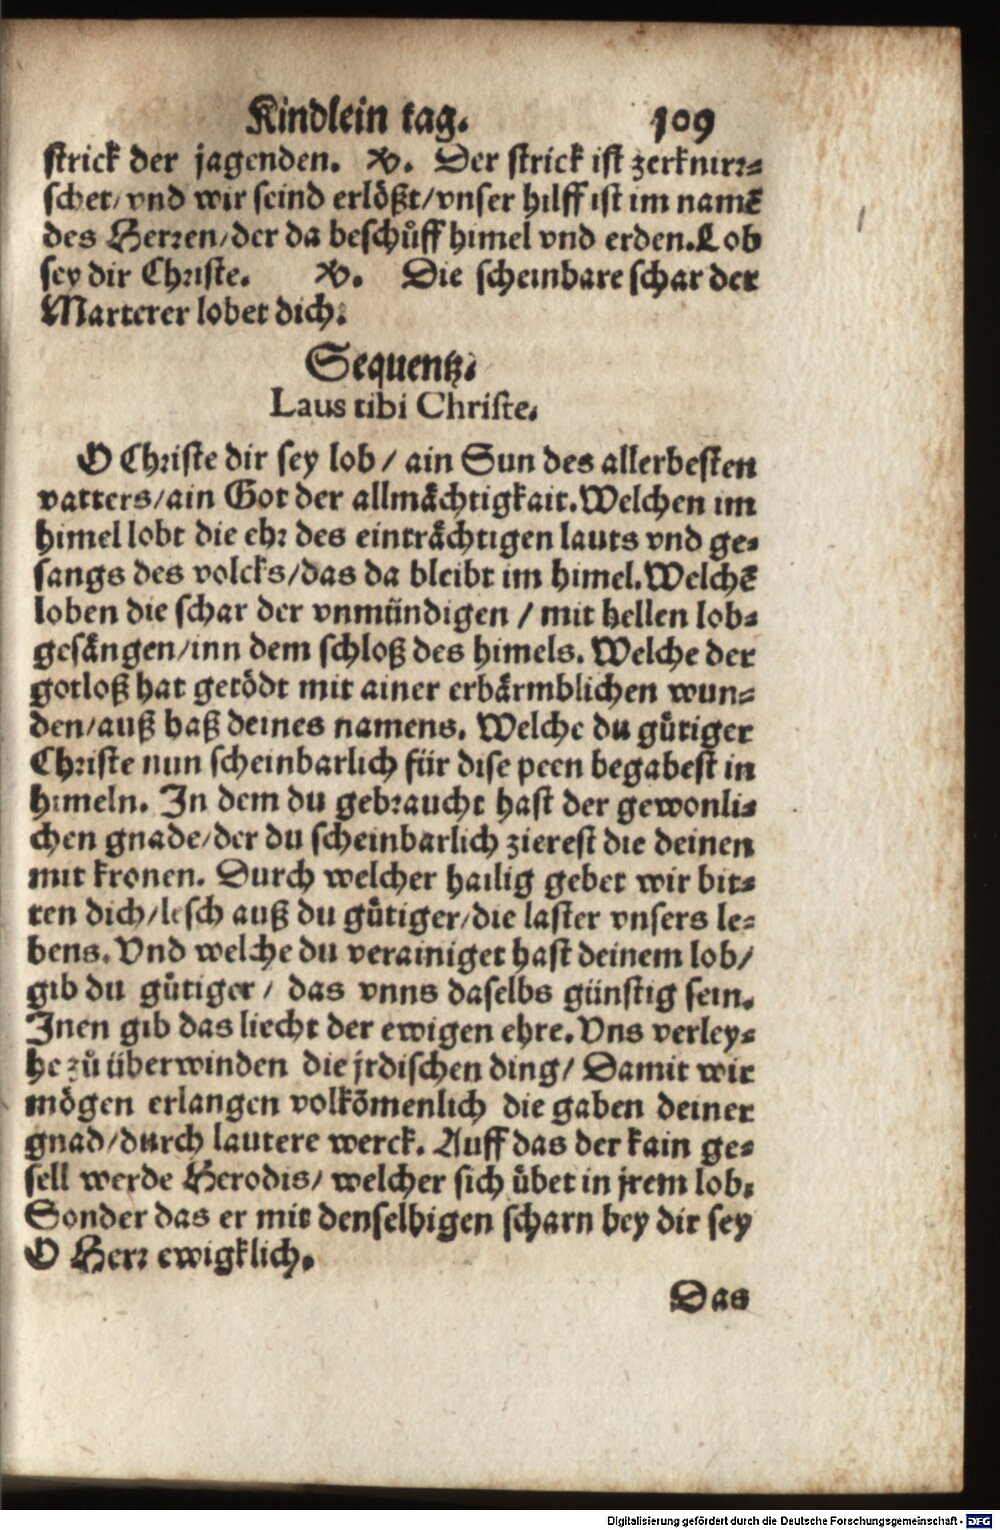 Kindlein tag. 109
strick der jagenden. V. Der strick ist zerknirr⸗
schet/ vnd wir seind erlößt/ vnser hilff ist im namē
des Herren/ der da beschuͤff himel vnd erden. Lob
sey dir Christe. V. Die scheinbare schar der
Marterer lobet dich.
Sequentz.
Laus tibi Christe.
O Christe dir sey lob / ain Sun des allerbesten
vatters/ ain Got der allmaͤchtigkait. Welchen im
himel lobt die ehr des eintraͤchtigen lauts vnd ge⸗
sangs des volcks/ das da bleibt im himel. Welchē
loben die schar der vnmündigen / mit hellen lob⸗
gesaͤngen/ inn dem schloß des himels. Welche der
gotloß hat getoͤdt mit ainer erbaͤrmblichen wun⸗
den/ auß haß deines namens. Welche du guͤtiger
Christe nun scheinbarlich für dise peen begabest in
himeln. In dem du gebraucht hast der gewonli⸗
chen gnade/ der du scheinbarlich zierest die deinen
mit kronen. Durch welcher hailig gebet wir bit⸗
ten dich/ lesch auß du guͤtiger/ die laster vnsers le⸗
bens. Vnd welche du verainiget hast deinem lob/
gib du guͤtiger / das vnns daselbs günstig sein.
Inen gib das liecht der ewigen ehre. Vns verley⸗
he zuͦ überwinden die jrdischen ding/ Damit wir
moͤgen erlangen volkōmenlich die gaben deiner
gnad/ durch lautere werck. Auff das der kain ge⸗
sell werde Herodis/ welcher sich uͤbet in jrem lob.
Sonder das er mit denselbigen scharn bey dir sey
O Herr ewigklich.
Das
Digitalisierung gefördert durch die Deutsche Forschungsgemeinschaft - DFG